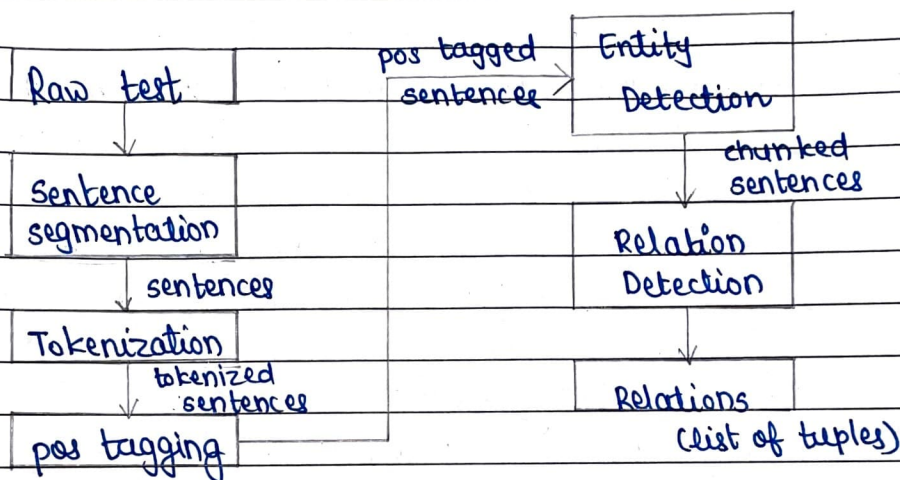 Raw test
Sentence
segmentation
sentences
Tokenization
tokenized
sentences
pos tagging
pos tagged
sentences
Entity
Detection
chunked
sentences
Relation
Detection
Relations
(list of tuples)